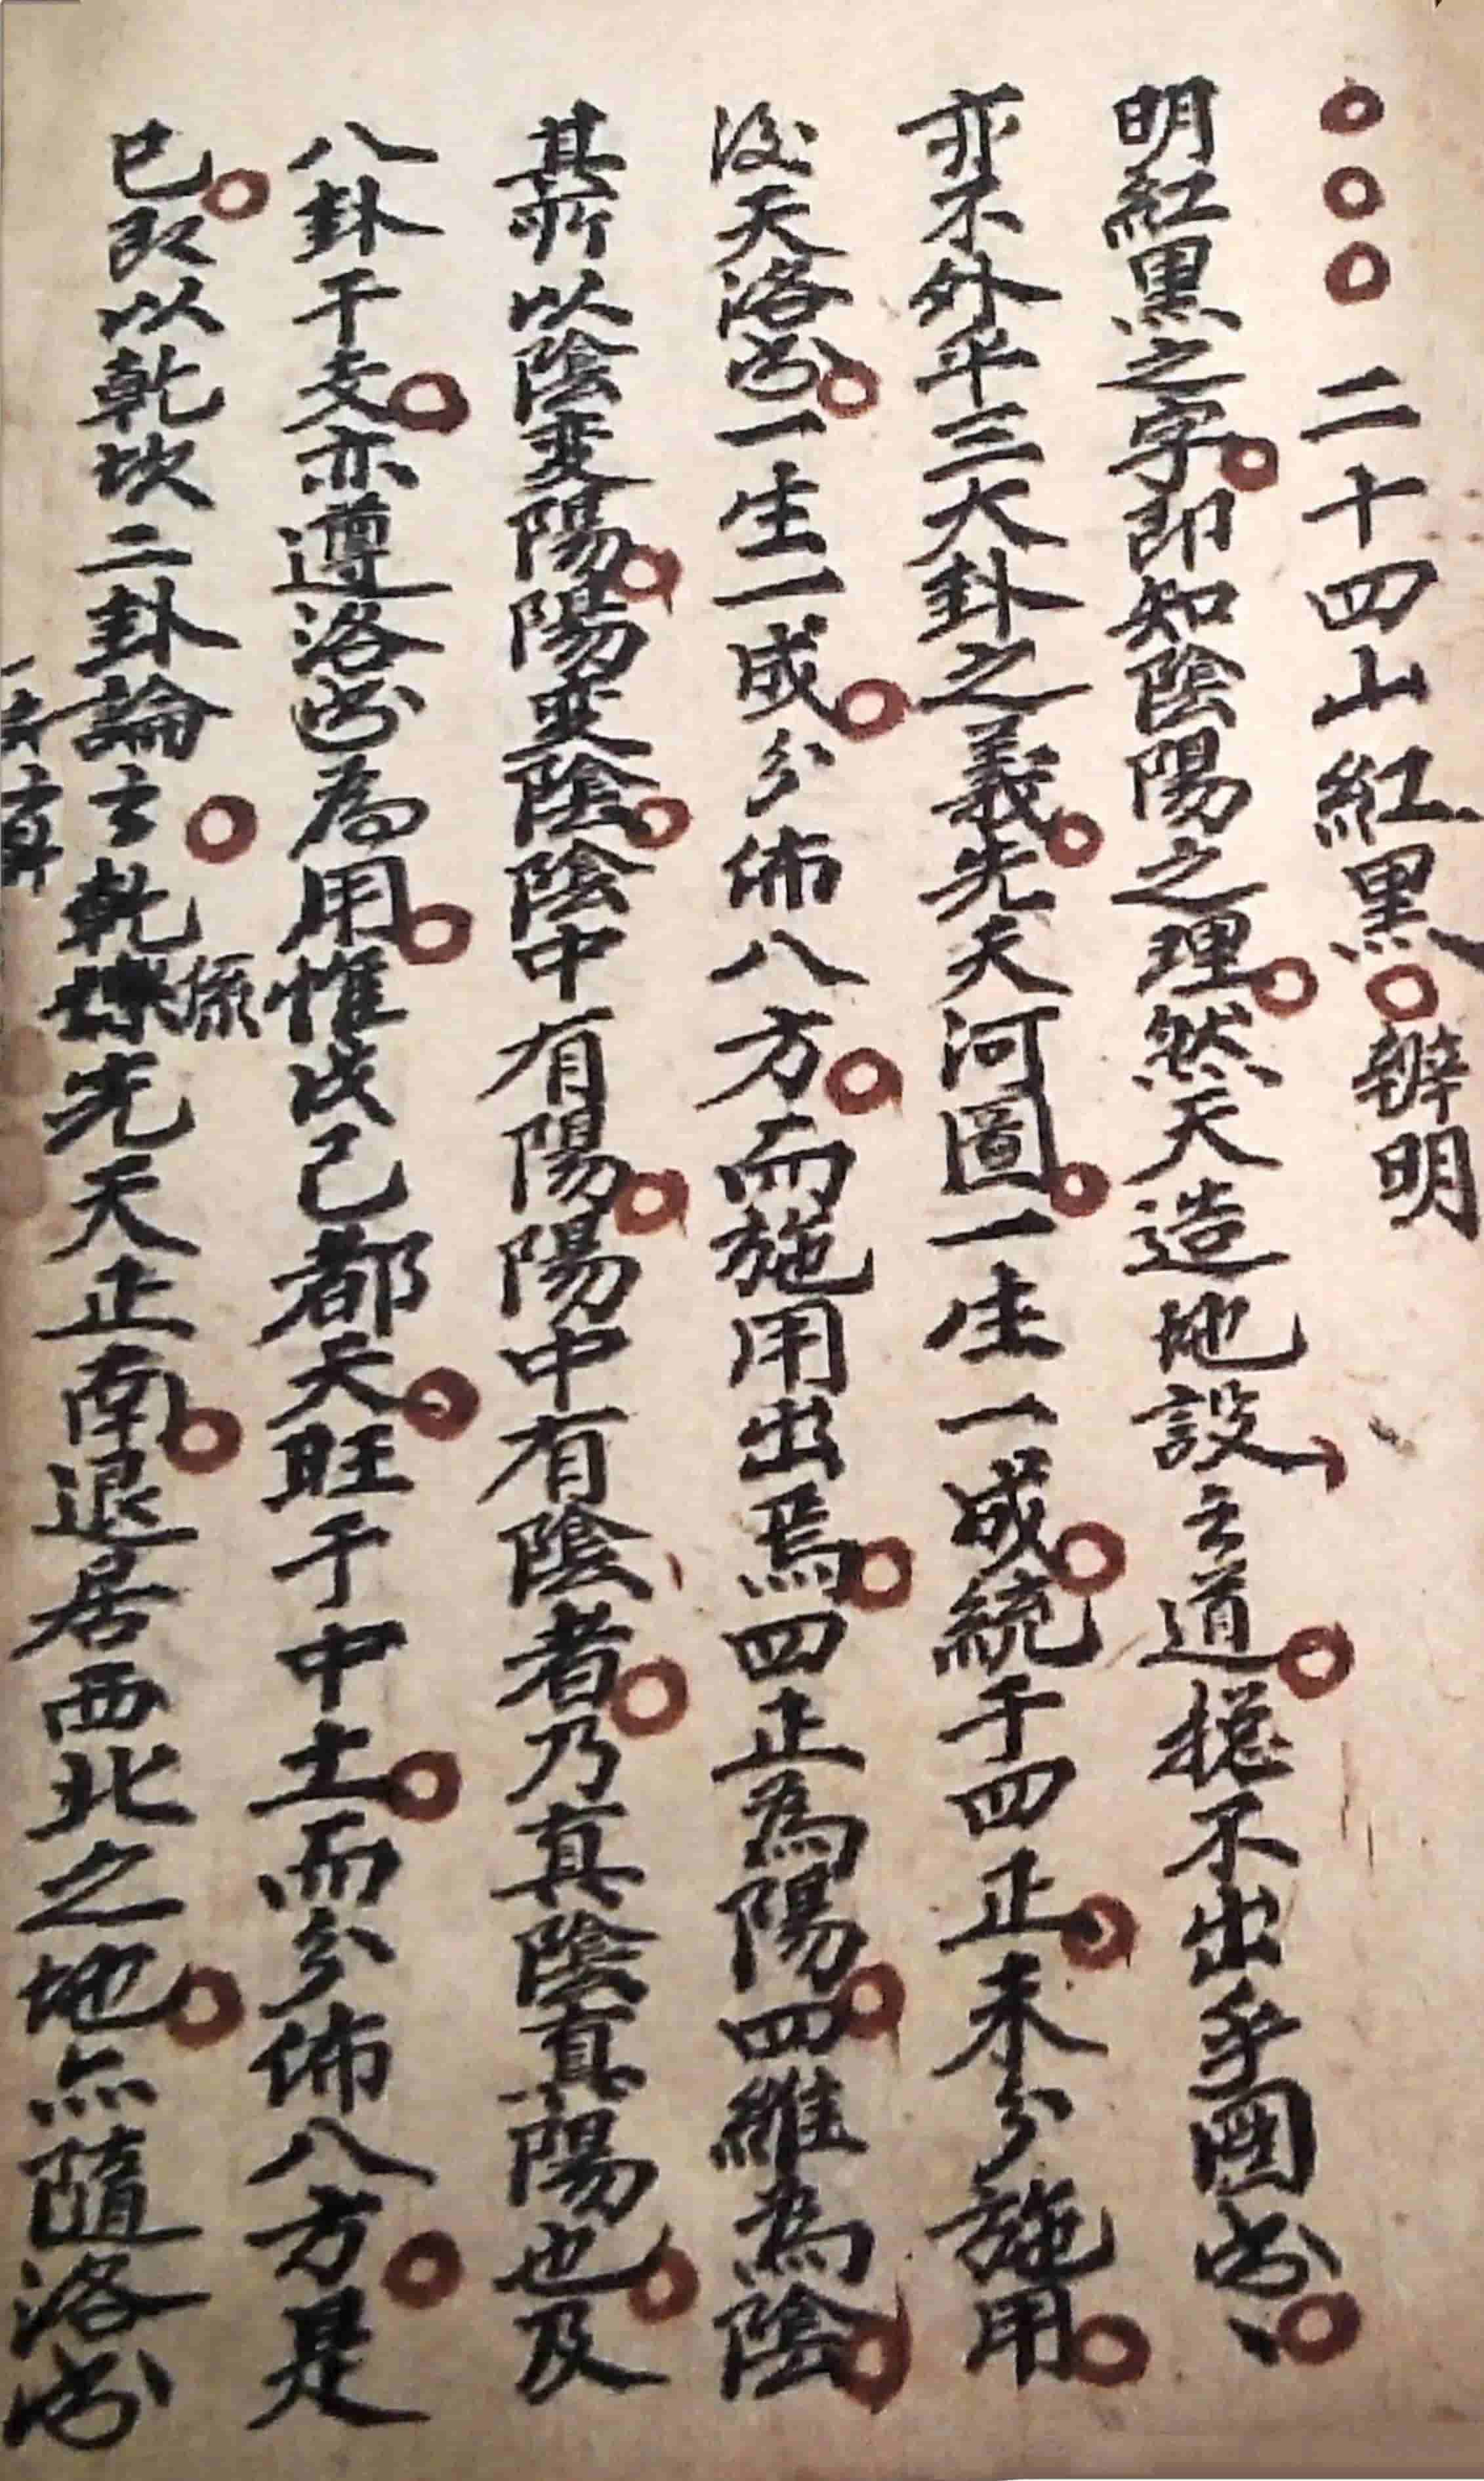 二十四山紅黑辨明
明紅黑之字即知陰陽之理然天造地設之道摠不出乎圖书
亦不外乎三大卦之義先天河圖一生一成統于四正未分施用
後天洛书一生一成分佈八方而施用出焉四正為陽四維為陰
其所以陰变陽陽变陰陰中有陽陽中有陰者乃真陰真陽也及
八卦干支亦遵洛书為用惟戊己都天旺于中土而分佈八方是
已即以乾坎二卦論之乾係先天正南退居西北之地点隨洛书